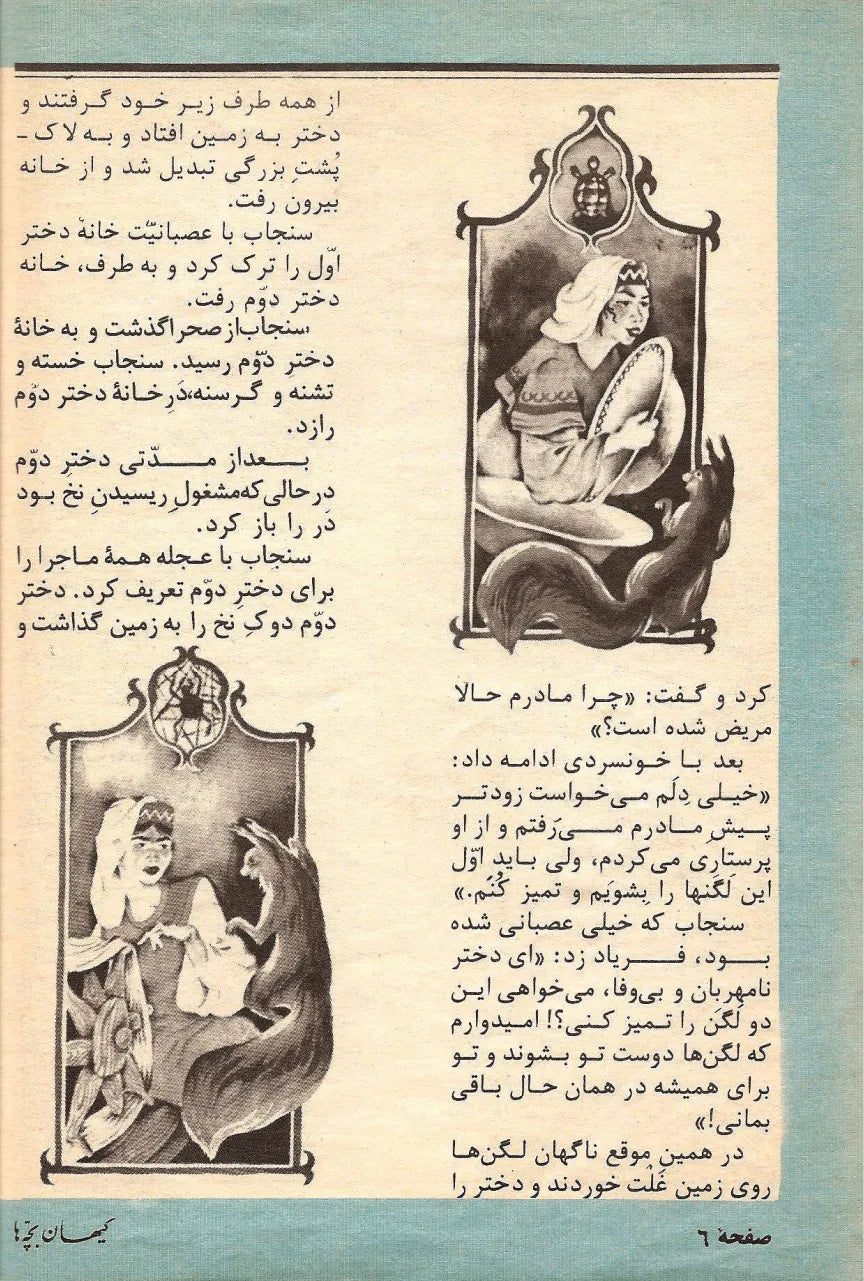 کرد و گفت: «چرا مادرم حالا
مریض شده است؟»
بعد با خونسردی ادامه داد:
«خیلی دِلَم می‌خواست زودتر
پیشِ مادرم می‌رَفتم و از او
پرستاری می‌کردم، ولی باید اوّل
این لَگنها را بِشویَم و تمیز کُنَم.»
سنجاب که خیلی عصبانی شده
بود، فریاد زد: «ای دختر
نامهربان و بی‌وفا، می‌خواهی این
دو لَگَن را تمیز کنی؟! امیدوارم
که لگن‌ها دوست تو بشوند و تو
برای همیشه در همان حال باقی
بمانی!»
در همین موقع ناگهان لگن‌ها
روی زمین غَلْت خوردند و دختر را
از همه طرف زیر خود گرفتند و
دختر به زمین افتاد و به لاک-
پُشتِ بزرگی تبدیل شد و از خانه
بیرون رفت.
سنجاب با عصبانیّت خانهٔ دختر
اوّل را ترک کرد و به طرف، خانه
دختر دوّم رفت.
سنجاب از صحرا گذشت و به خانهٔ
دخترِ دوّم رسید. سنجاب خسته و
تشنه و گرسنه، دَرِ خانهٔ دختر دوّم
رازد.
بعداز مدّتی دخترِ دوّم
درحالی‌که مشغولِ ریسیدنِ نخ بود
دَر را باز کرد.
سنجاب با عجله همهٔ ماجرا را
برای دخترِ دوّم تعریف کرد. دختر
دوّم دوکِ نخ را به زمین گذاشت و
صفحهٔ ٦
کیهان بچّه‌ها